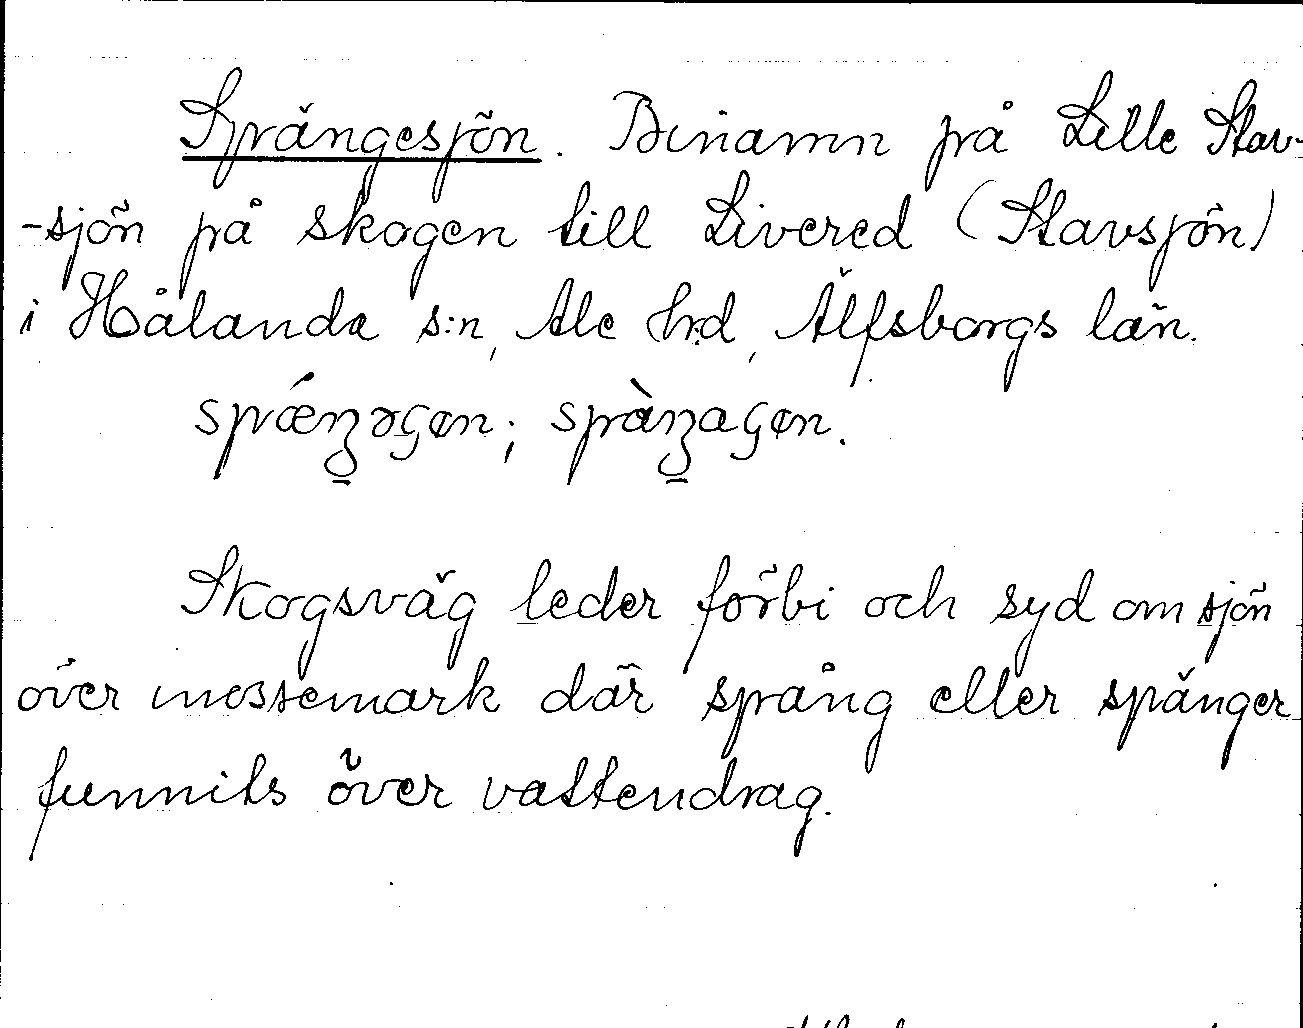 Sprängesjön. Binamn på Lille Stav-
-sjön på skogen till Livered (Stavsjön)
i Hålanda s:n, Ale hrd, Älfsborgs län.
Skogsväg leder förbi och syd om sjön
över mossemark där spång eller spänger
funnits över vattendrag.